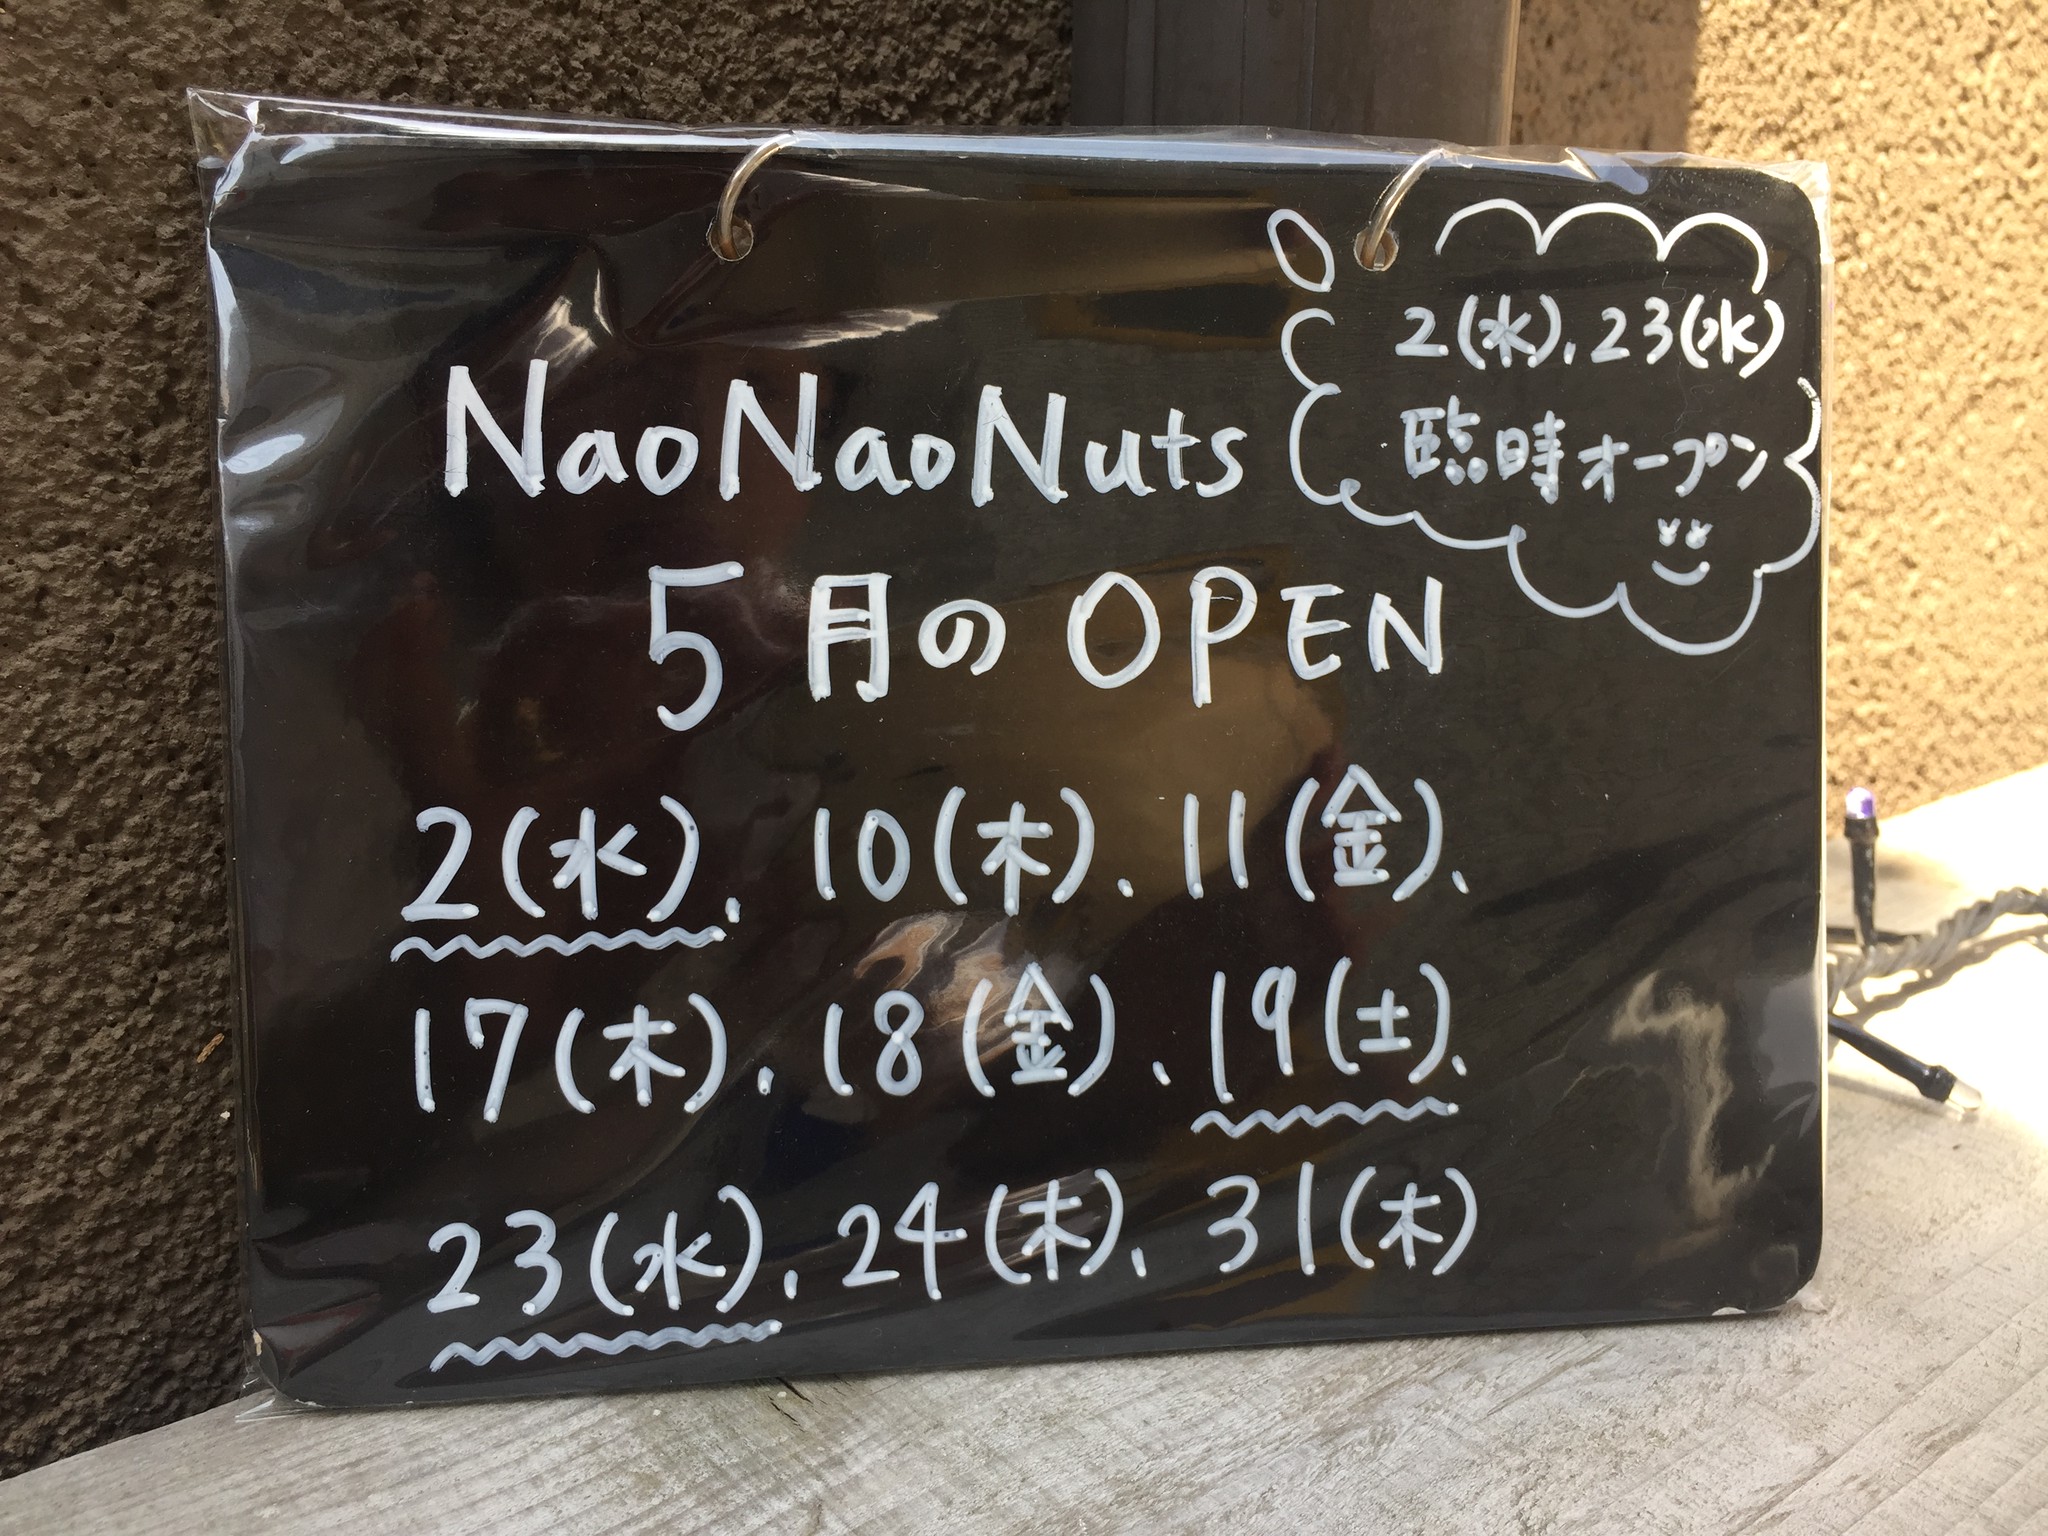 2(水)、23(水)
臨時オープン
NaoNaoNuts
5月のOPEN
2(水)、10(木)、11(金)、
17(木)、18(金)、19(土)、
23(水)、24(木)、31(木)